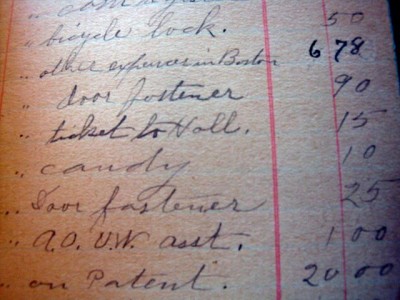 " bicycle lock. 50
" other expenses in Boston 6 78
" door fastener 90
" ticket to Hall. 15
" candy 10
" Door fastener 25
" A.O.U.W. asst. 1 00
" on Patent. 20 00